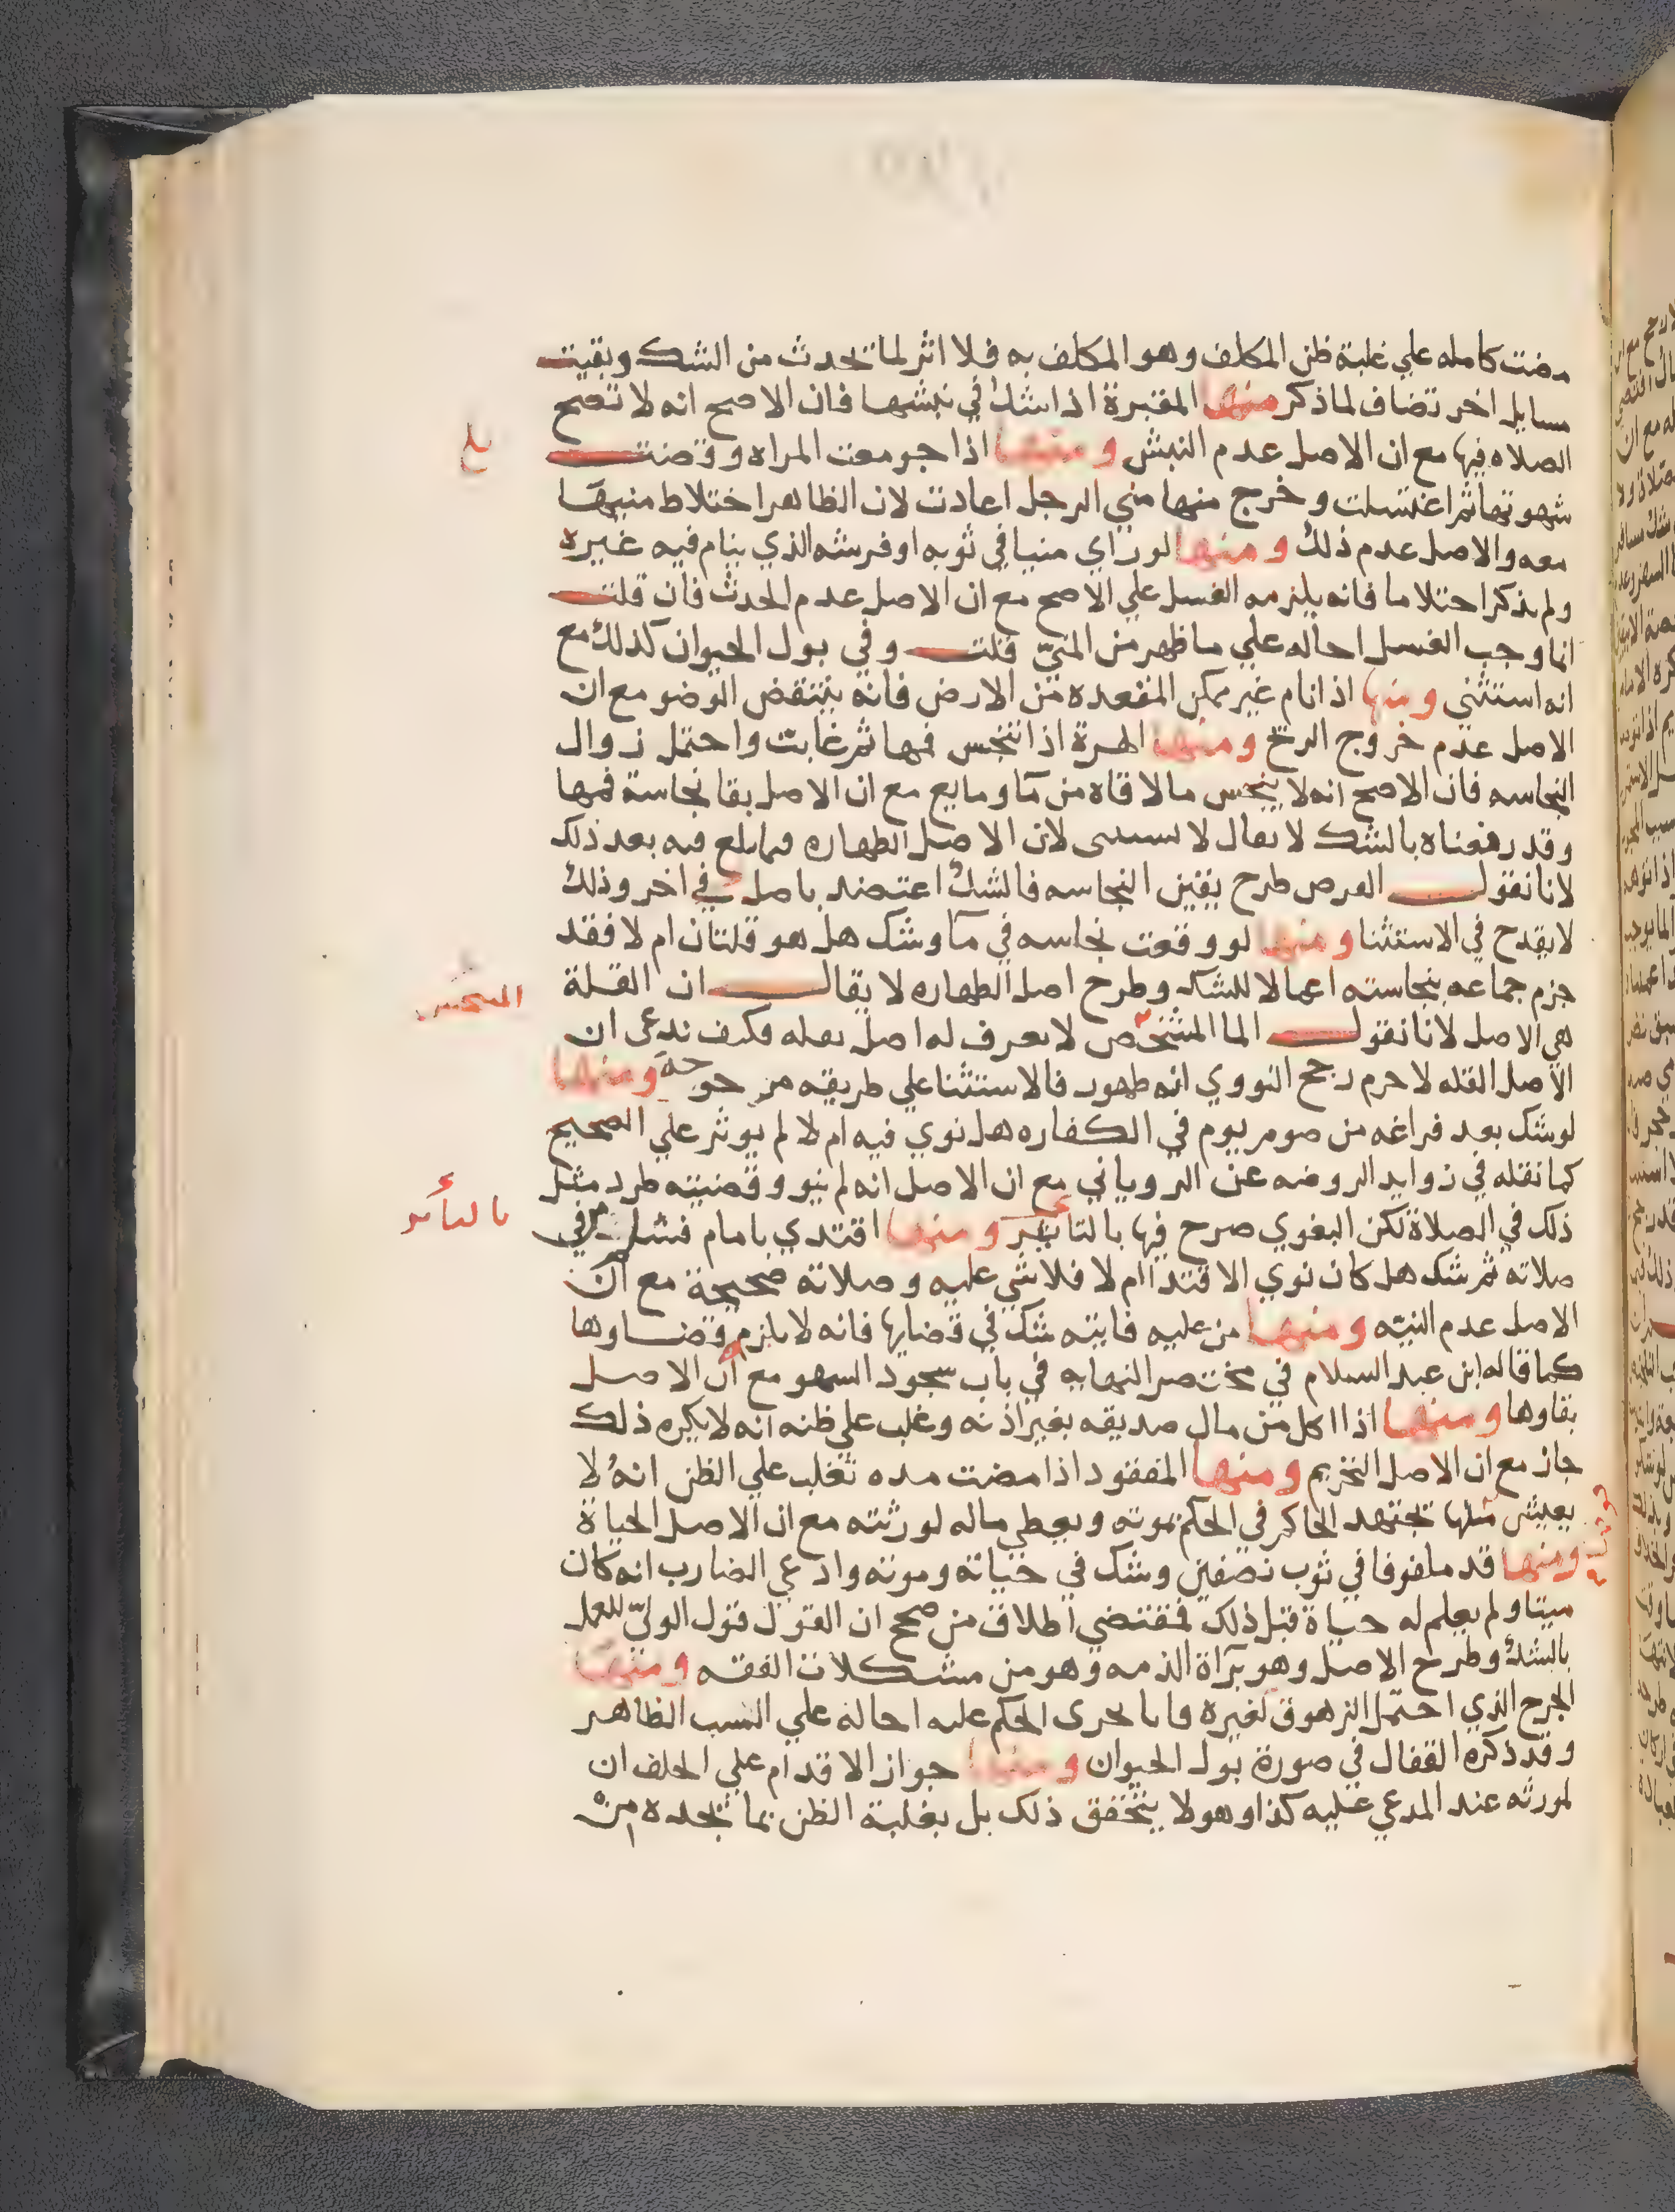 مضت كامله علي غلبة ظن المكلف وهو المكلف به فلا اثر لما تحدث من الشك وبقيت
مسايل اخر تضاف لما ذكر منها المقبرة اذا شك في نبشها فان الاصح انه لا تصح
الصلاه فيها مع ان الاصل عدم النبش ومنها اذا جومعت المراه وقضت
بلغ
شهوتها ثم اغتسلت وخرج منها مني الرجل اعادت لان الظاهر اختلاط منيها
معه والاصل عدم ذلك ومنها لو راي منيا في ثوبه او فرشه الذي ينام فيه غيره
ولم يذكر احتلاما فانه يلزمه الغسل علي الاصح مع ان الاصل عدم الحدث فان قلت
انما وجب الغسل احاله علي ما ظهر من المني قلت وفي بول الحيوان كذلك مع
انه استثني ومنها اذا نام غير ممكن المقعده من الارض فانه ينتقض الوضو مع ان
الاصل عدم خروج الريح ومنها الهرة اذا تنجس فمها ثم غابت واحتمل زوال
النجاسه فان الاصح انه لا ينجس ما لاقاه من مآ ومايع مع ان الاصل بقا نجاسة فمها
وقد رفعناه بالشك لا يقال لا يستثنى لان الاصل الطهاره فيما يلغ فيه بعد ذلك
لانا نقول الغرض طرح يقين النجاسه فالشك اعتضد باصل في اخر وذلك
لا يقدح في الاستثنا ومنها لو وقعت نجاسه في مآ وشك هل هو قلتان ام لا فقد
جزم جماعه بنجاسته اعمالا للشك وطرح اصل الطهاره لا يقال ان القلة
هي الاصل لانا نقول الما المشخص لا يعرف له اصل بقله فكيف ندعى ان
الاصل القله لا جرم رجح النووي انه طهور فالاستثنا علي طريقه من ومنها
لو شك بعد فراغه من صوم يوم في الكفاره هل نوي فيه ام لا لم يوثر علي الصحيح
كما نقله في زوايد الروضه عن الروياني مع ان الاصل انه لم ينو وقضيته طرد مثل
ذلك في الصلاة لكن البغوي صرح فيها بالتاثير ومنها اقتدي بامام فسلم من
صلاته ثم شك هل كان نوي الاقتدا ام لا فلا شي عليه وصلاته صحيحة مع ان
الاصل عدم النيته ومنها من عليه فايته شك في قضايها فانه لا يلزمه قضاوها
كما قاله ابن عبد السلام في مختصر النهايه في باب سجود السهو مع ان الاصل
بقاوها ومنها اذا اكل من مال صديقه بغير اذنه وغلب علي ظنه انه لا يكره ذلك
جاز مع ان الاصل التحريم ومنها المفقود اذا مضت مده تغلب علي الظن انه لا
يعيش مثلها تجتهد الحاكم في الحكم بموته ويعطي ماله لورثته مع ان الاصل الحياة
ومنها قد ملفوفا في ثوب نصفين وشك في حياته وموته وادعي الضارب انه كان
ميتا ولم يعلم له حياة قبل ذلك فمقتضي اطلاق من صحح ان القول قول الولي للعمل
بالشك وطرح الاصل وهو برآة الذمه وهو من مشكلات الفقه ومنها
الجرح الذي احتمل الزهوق لغيره فانا نجرى الحكم عليه احاله علي السبب الظاهر
وقد ذكره القفال في صورة بول الحيوان ومنها جواز الاقدام علي الحلف ان
لمورثه عند المدعي عليه كذا وهو لا يتحقق ذلك بل بغلبة الظن بما تجده من